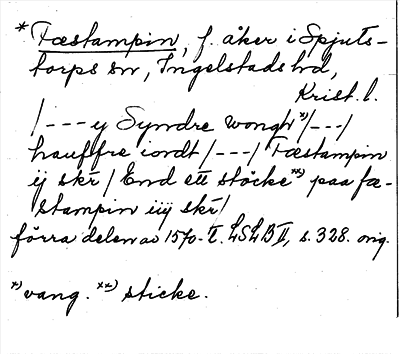 * Fæstampin, f. åker i Spjuts-
torps sn, Ingelstads hd,
Krist. l.
/---y Syndre wongh *) /---/
hauffre iordt /---/ Fæstampin
ÿ skr̄ / End ett stöcke **) paa fæ-
stampin iiÿ skr̄ /
förra delen av 1570-t. LSLB II, s. 328. orig.
*) vang. **) sticke.